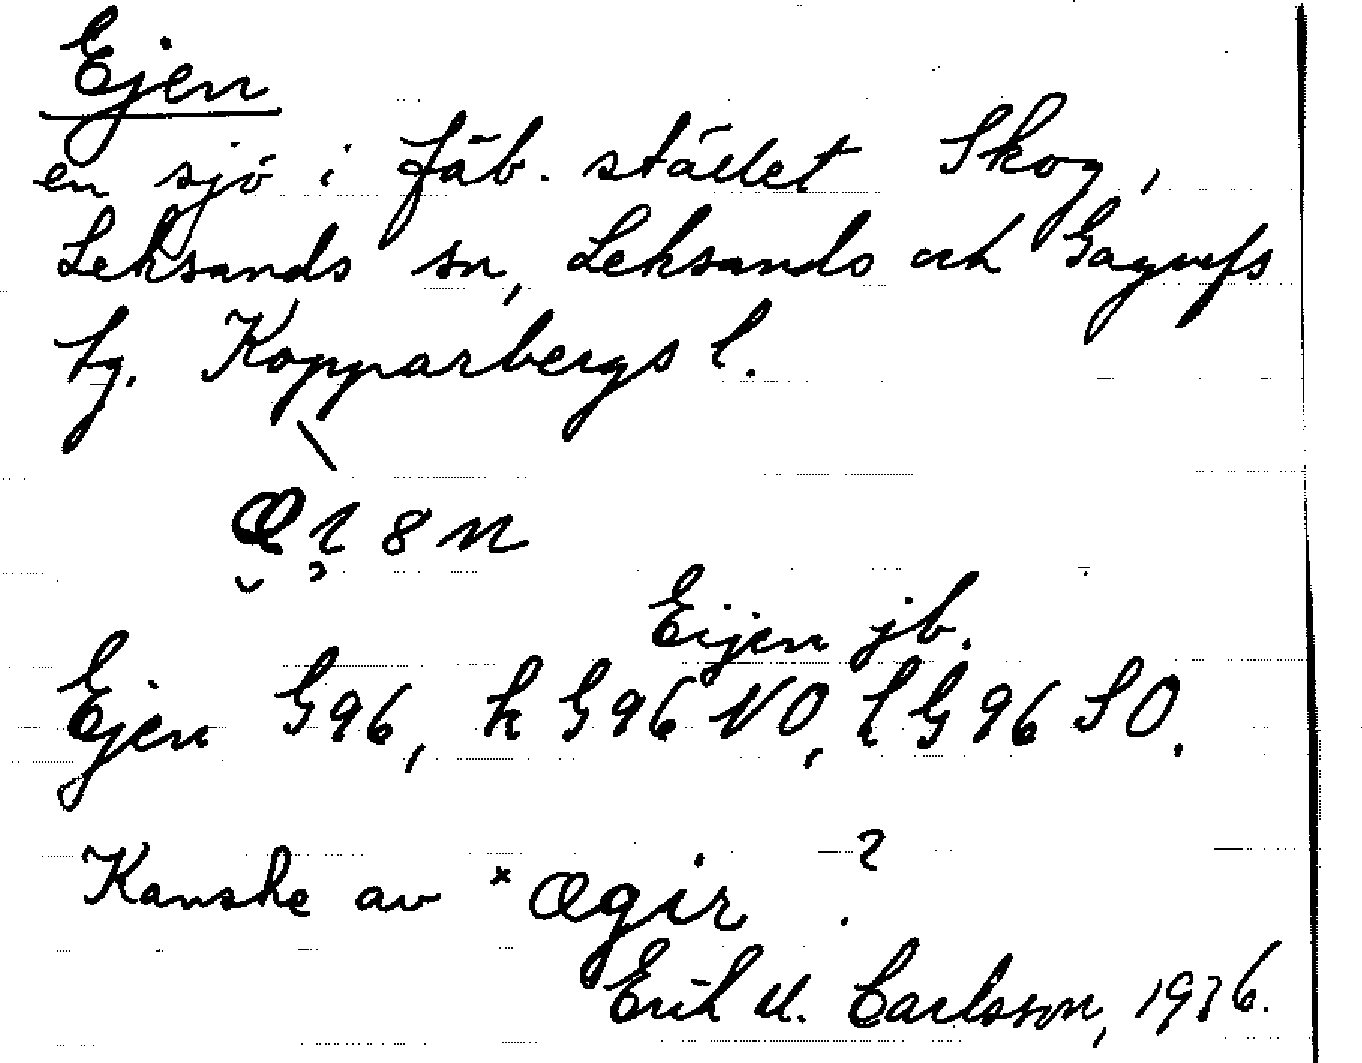 Ejen
en sjö i fäb. stället Skog,
Leksands sn, Leksands och Gagnefs
tg. Kopparbergs l.
Eijen jb.
Ejen G96, k G96 NO, l G96 SO.
Kanske av *ægir ?
Erik U. Carlsson, 1936.